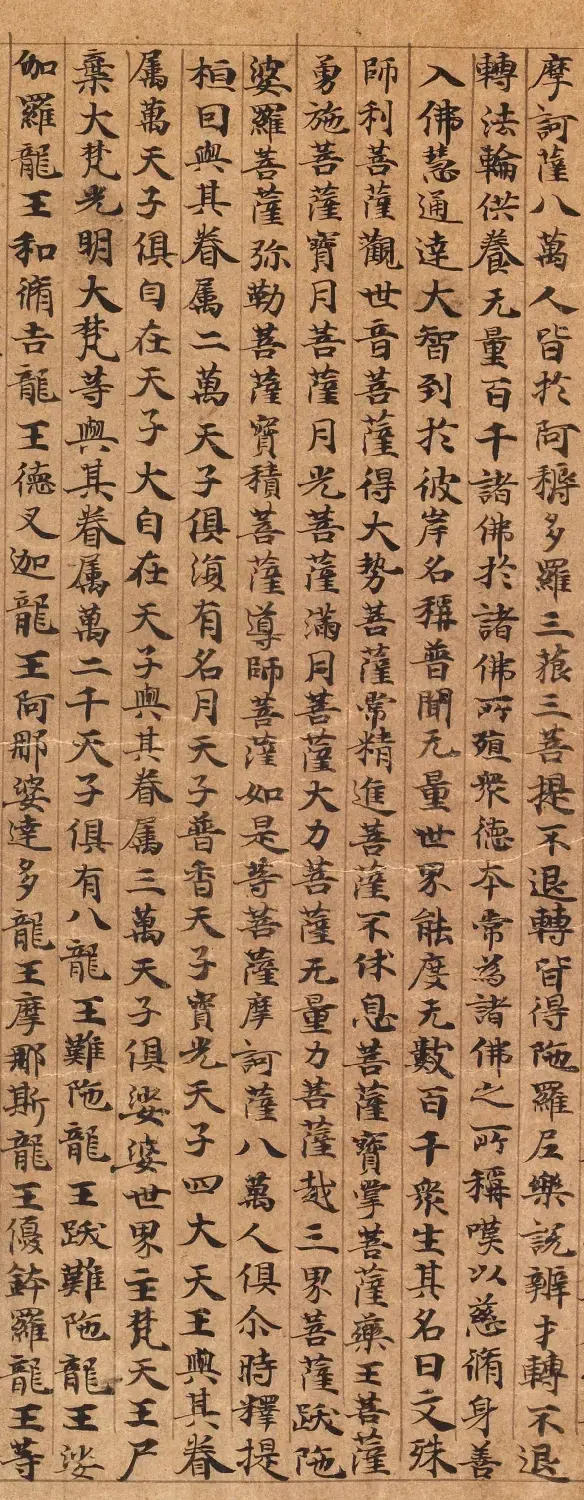 摩訶薩八萬人皆於阿耨多羅三藐三菩提不退轉皆得陁羅尼樂說辯才轉不退
轉法輪供養无量百千諸佛於諸佛所殖衆德本常為諸佛之所稱嘆以慈脩身善
入佛慧通達大智到於彼岸名稱普聞无量世界能度无數百千衆生其名曰文殊
師利菩薩觀世音菩薩得大勢菩薩常精進菩薩不休息菩薩寶掌菩薩藥王菩薩
勇施菩薩寶月菩薩月光菩薩滿月菩薩大力菩薩无量力菩薩越三界菩薩跋陁
婆羅菩薩弥勒菩薩寶積菩薩導師菩薩如是等菩薩摩訶薩八萬人俱尒時釋提
桓因與其眷属二萬天子俱復有名月天子普香天子寶光天子四大天王與其眷
属萬天子俱自在天子大自在天子與其眷属三萬天子俱娑婆世界主梵天王尸
棄大梵光明大梵等與其眷属萬二千天子俱有八龍王難陁龍王跋難陁龍王娑
伽羅龍王和脩吉龍王德叉迦龍王阿那婆達多龍王摩那斯龍王優鉢羅龍王等